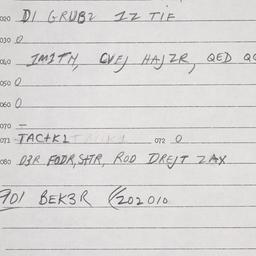 020 DI GRUB2 12 TIF
030 0
040 IMITH, CVEJ HAJZR, QED
050 0
060 0
070 –
071 TACTKL 072 0
080 D3R FODR, SHTR, ROD DREJT ZAX
901 BEK3R (202010